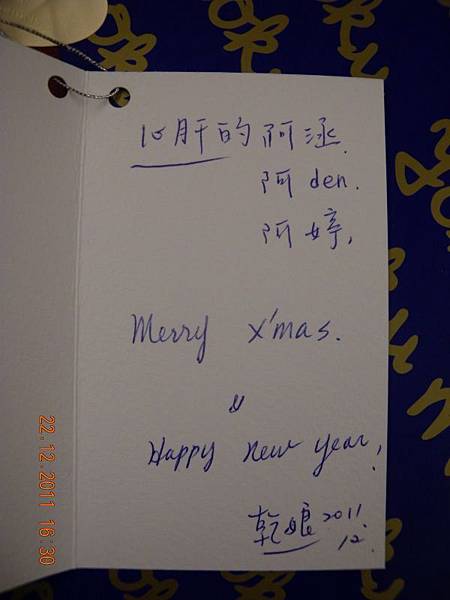 心肝的阿涵.
阿den.
阿婷,
Merry x'mas.
&
Happy new year!
乾娘 2011.
12.
22.12.2011 16:30